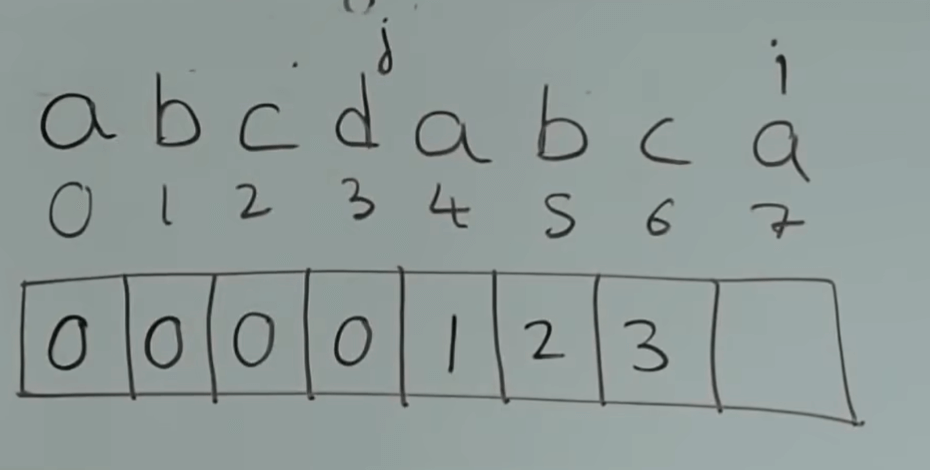 j i
a b c d a b c a
0 1 2 3 4 5 6 7
0 0 0 0 1 2 3